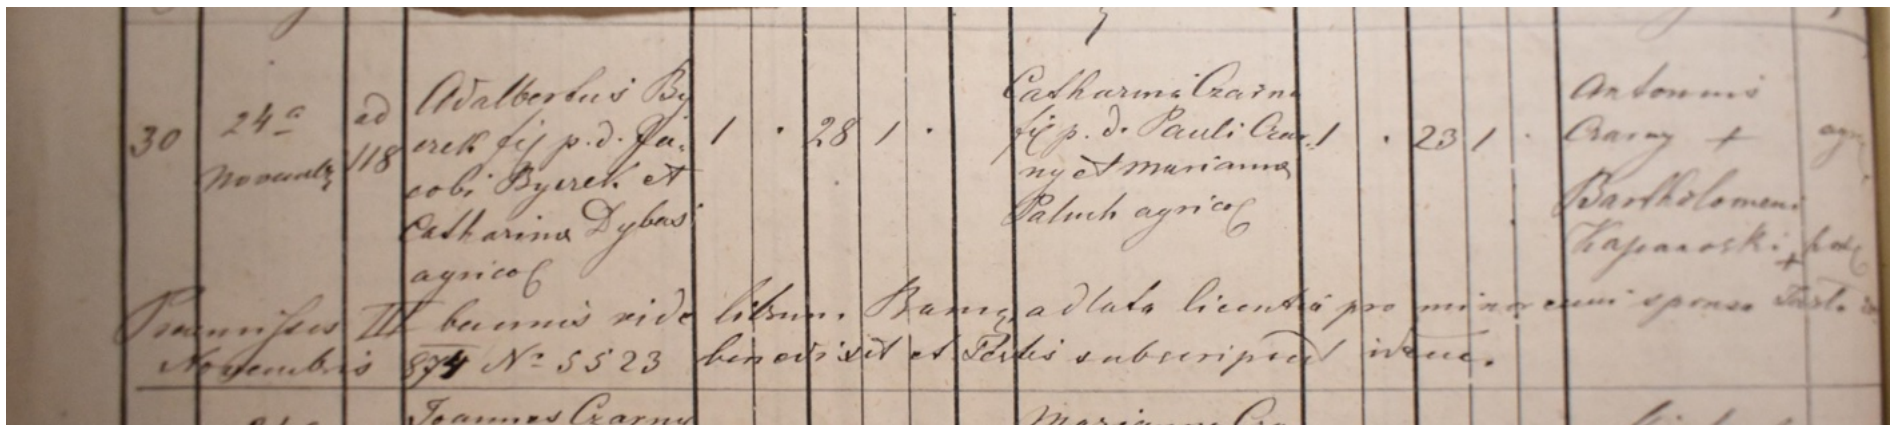 30 24a Novembr ad 118
Adalbertus By
erek fij p. d. Ja:
cobi Byerek et
Catharina Dybas
agricol
1 . 28 1 .
Catharina Czarna
fij p. d. Pauli Czar
ny et Marianna
Paluch agricol
1 . 23 1 .
Antonius
Czarny + agri
Bartholomeus
+
Praemissis III bannis vide librum. Bann. adlata licentia pro minorenni sponsa
Novembris 874 No 5523 benedixit et Testis subscripsit idem.
Joannes Czarny